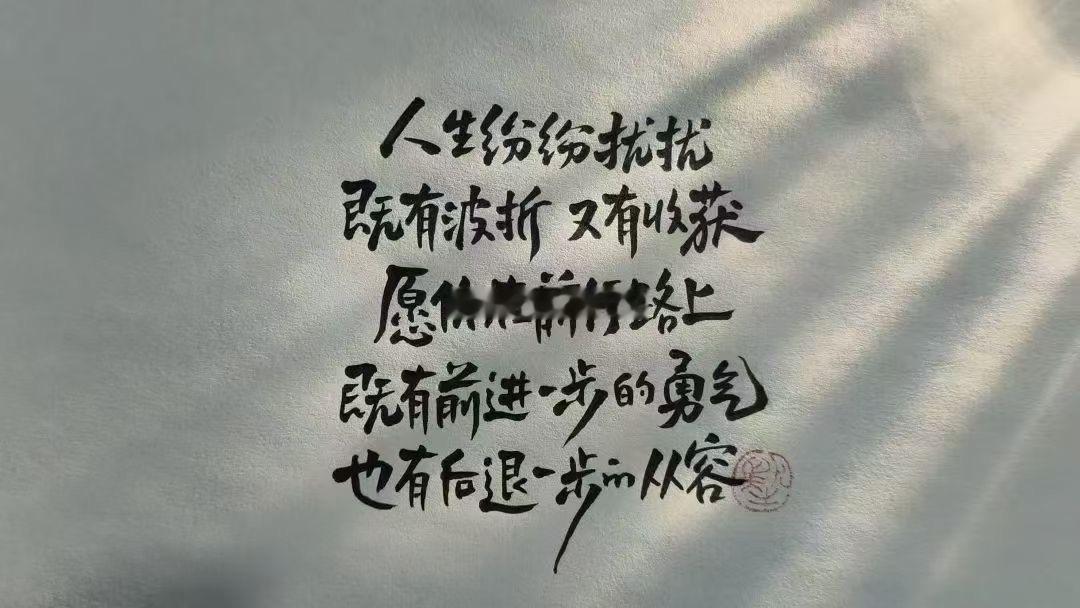 人生纷纷扰扰
既有波折 又有收获
愿你在前行路上
既有前进一步的勇气
也有后退一步的从容